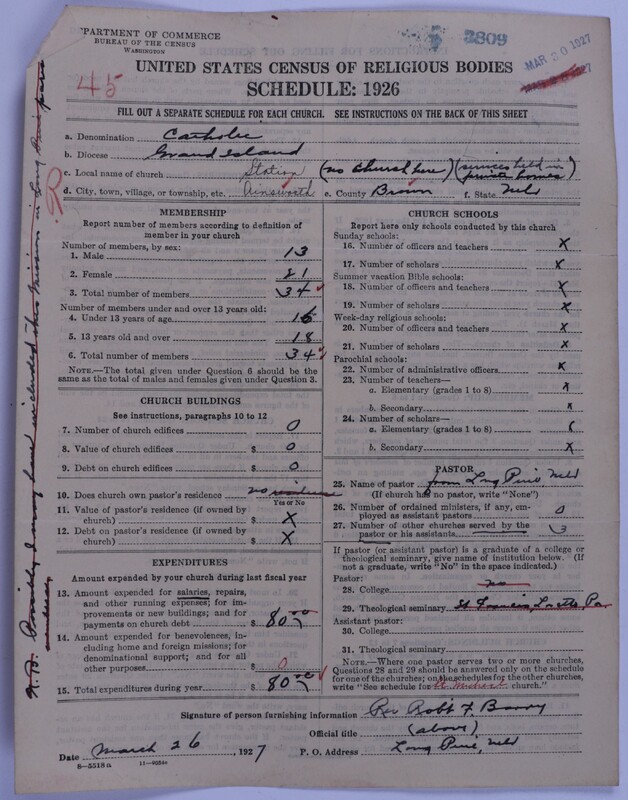 DEPARTMENT OF COMMERCE
BUREAU OF THE CENSUS
WASHINGTON
3809
MAR 30 1927
45
UNITED STATES CENSUS OF RELIGIOUS BODIES
SCHEDULE: 1926
FILL OUT A SEPARATE SCHEDULE FOR EACH CHURCH. SEE INSTRUCTIONS ON THE BACK OF THIS SHEET
a. Denomination Catholic
b. Diocese Grand Island
c. Local name of church Station (no church here) (services held in private homes)
d. City, town, village, or township, etc. Ainsworth e. County Brown f. State Neb
MEMBERSHIP
Report number of members according to definition of
member in your church
Number of members, by sex:
1. Male 13
2. Female 21
3. Total number of members 34
Number of members under and over 13 years old:
4. Under 13 years of age 16
5. 13 years old and over 18
6. Total number of members 34
NOTE.—The total given under Question 6 should be
same as the total of males and females given under Question 3.
CHURCH BUILDINGS
See instructions, paragraphs 10 to 12
7. Number of church edifices 0
8. Value of church edifices $ 0
9. Debt on church edifices $ 0
10. Does church own pastor's residence no residence
Yes or No
11. Value of pastor's residence (if owned by
church) $ X
12. Debt on pastor's residence (if owned by
church) $ X
EXPENDITURES
Amount expended by your church during last fiscal year
13. Amount expended for salaries, repairs,
and other running expenses; for im-
provements or new buildings; and for
payments on church debt $ 80 00
14. Amount expended for benevolences,
including home and foreign missions; for
denominational support; and for all
other purposes $ 0
15. Total expenditures during year $ 80 00
CHURCH SCHOOLS
Report here only schools conducted by this church
Sunday schools:
16. Number of officers and teachers X
17. Number of scholars X
Summer vacation Bible schools:
18. Number of officers and teachers X
19. Number of scholars X
Week-day religious schools:
20. Number of officers and teachers X
21. Number of scholars X
Parochial schools:
22. Number of administrative officers X
23. Number of teachers—
a. Elementary (grades 1 to 8) X
b. Secondary X
24. Number of scholars—
a. Elementary (grades 1 to 8)
b. Secondary X
PASTOR
25. Name of pastor from Long Pine Neb
(If church has no pastor, write "None")
26. Number of ordained ministers, if any, em-
ployed as assistant pastors 0
27. Number of other churches served by the
pastor or his assistants 3
If pastor (or assistant pastor) is a graduate of a college or
theological seminary, give name of institution below. (If
not a graduate, write "No" in the space indicated.)
Pastor:
28. College no
29. Theological seminary St Francis Loretto Pa
Assistant pastor:
30. College
31. Theological seminary
NOTE.—Where one pastor serves two or more churches,
Questions 28 and 29 should be answered only on the schedule
for one of the churches; on the schedules for the other churches,
write "See schedule for church."
Signature of person furnishing information Rev Robt F. Barry
Official title (above)
Date March 26 1927 P. O. Address Long Pine, Neb
6—5518a 11—9054
N.B. Possibly I may have included this mission in Long Pine